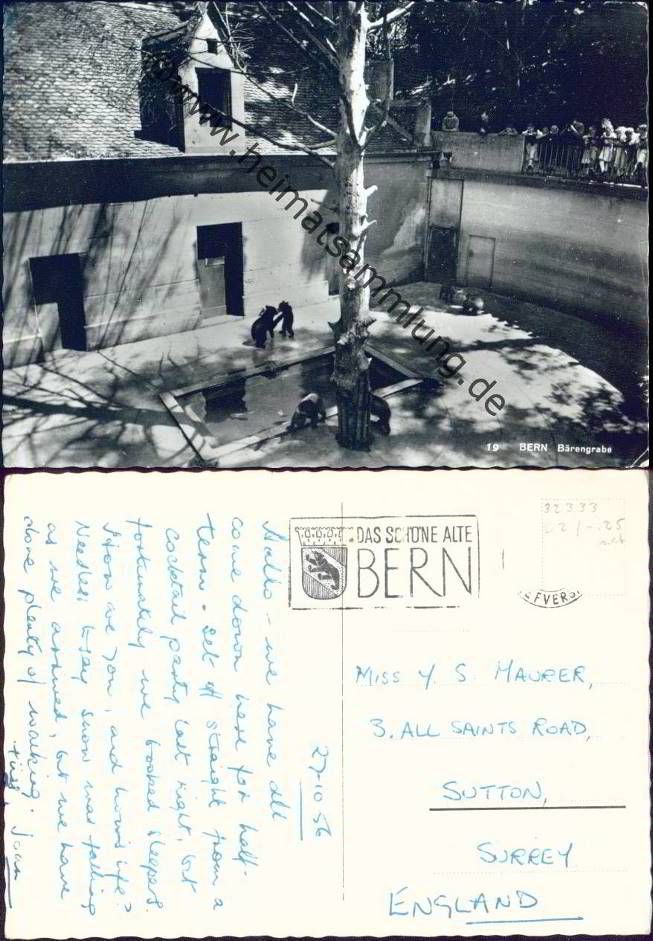 www.heimatsammlung.de
19 BERN Bärengrabe
DAS SCHÖNE ALTE
BERN
32333
27-10-56
Hello - we have all
come down here for half-
term - set off straight from a
cocktail party last night, but
fortunately we booked sleepers.
How are you, and how's life?
Needless to say snow was falling
as we arrived, but we have
done plenty of walking.
Joan
MISS Y. S. MAURER,
3. ALL SAINTS ROAD,
SUTTON,
SURREY
ENGLAND